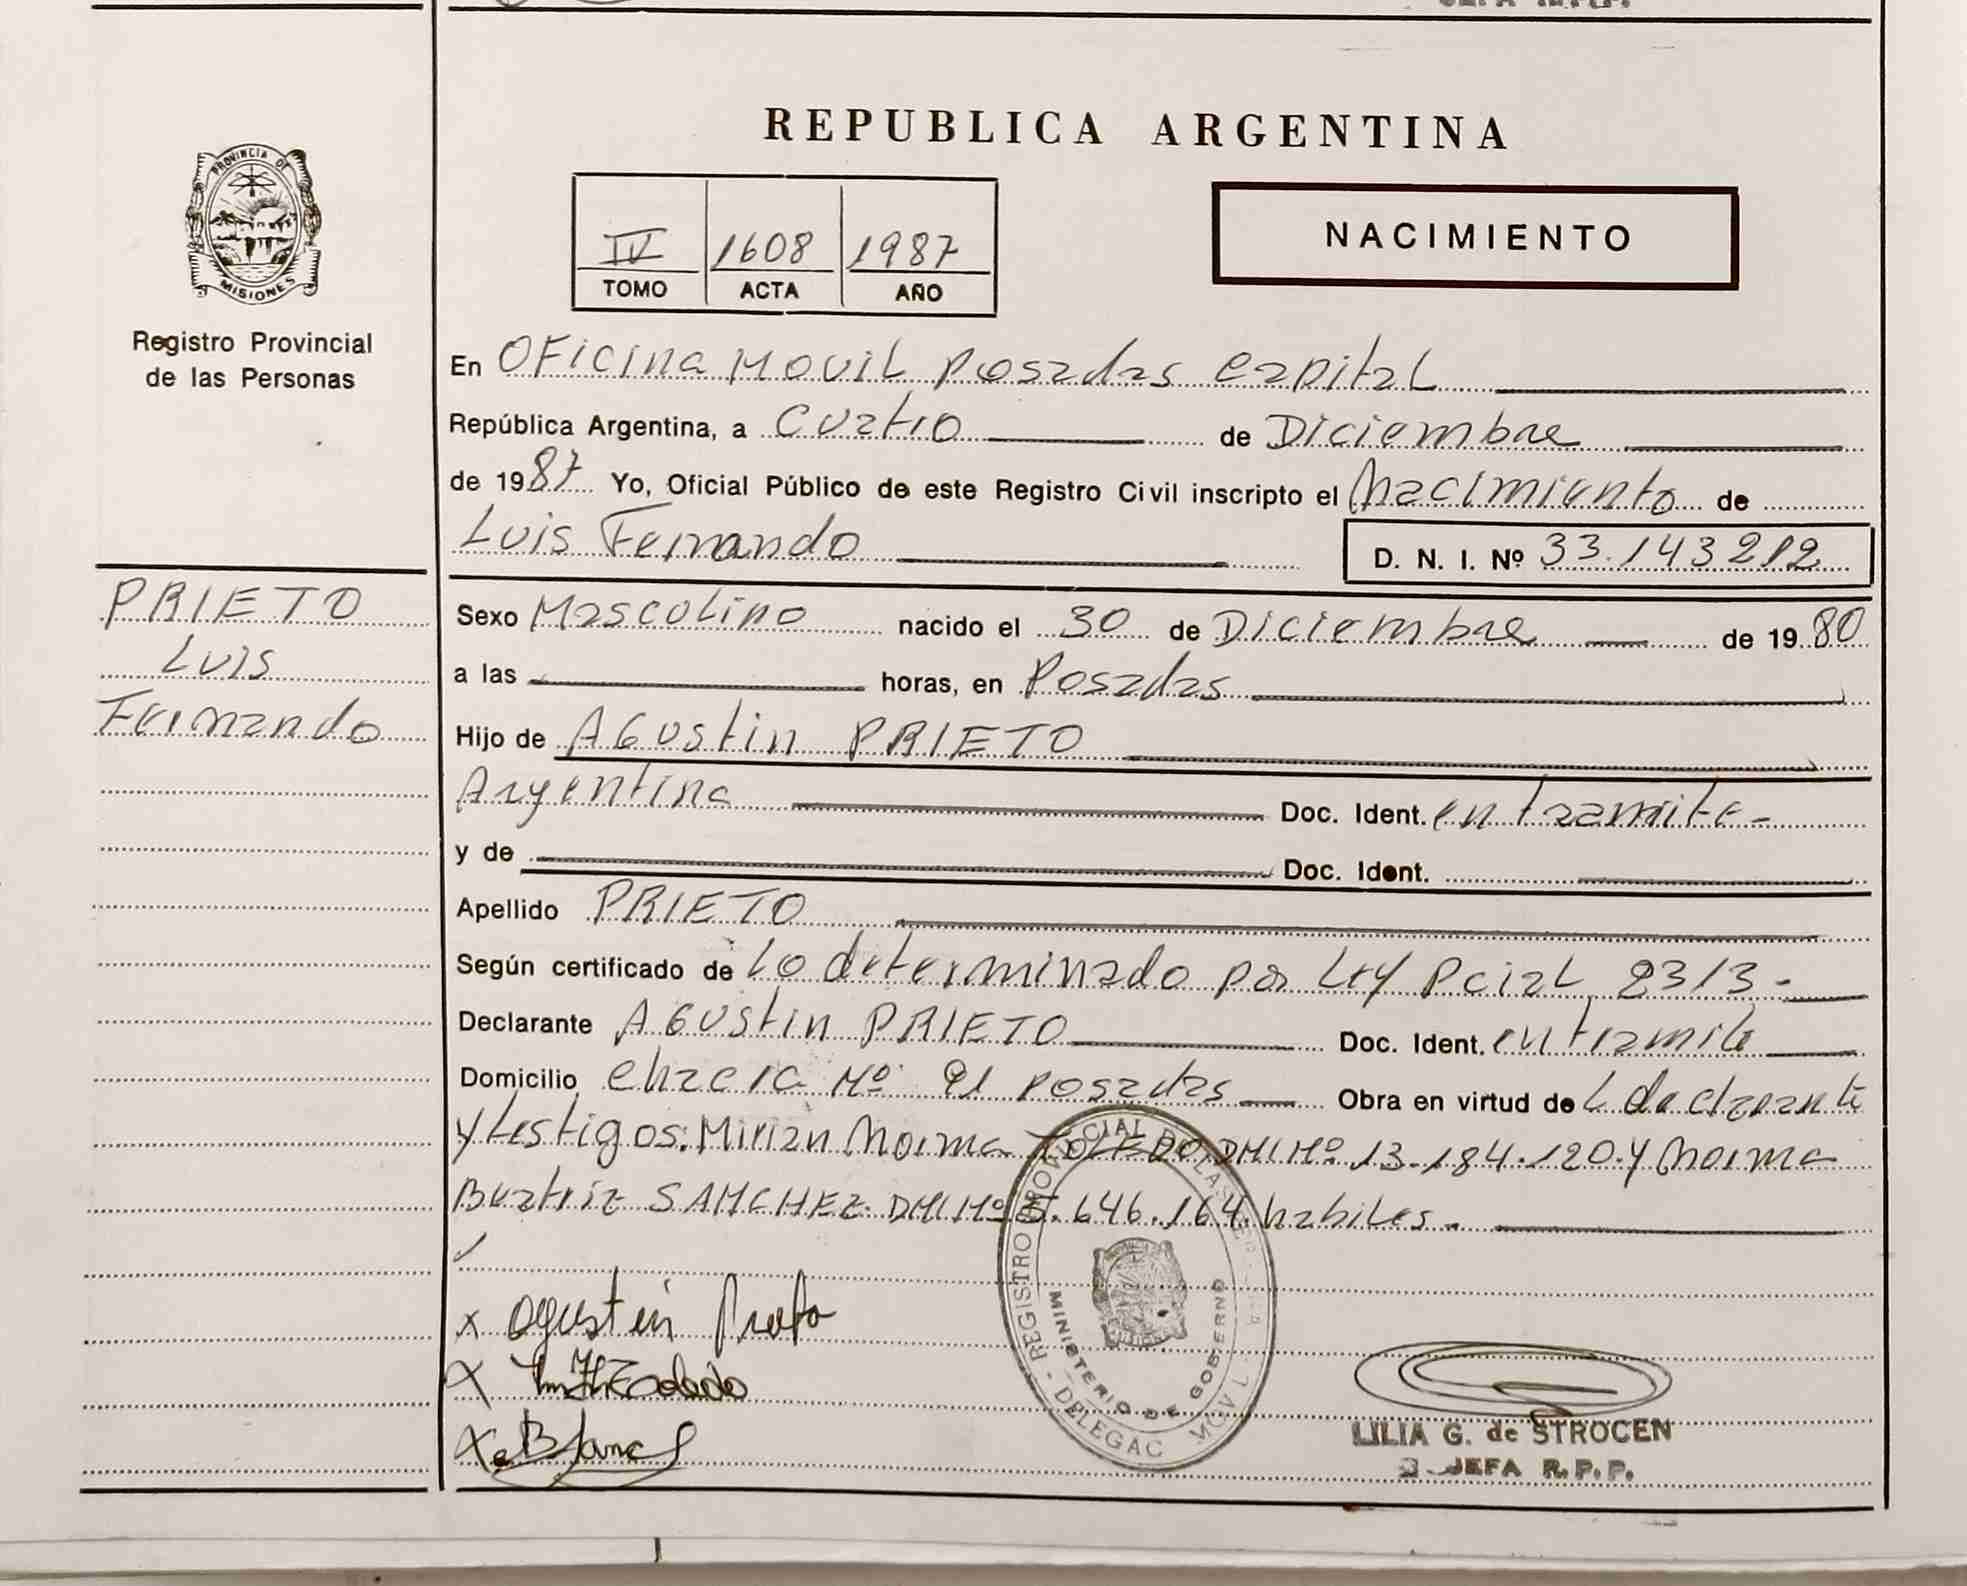 REPUBLICA ARGENTINA
PROVINCIA DE
MISIONES
Registro Provincial
de las Personas
IV 1608 1987
TOMO ACTA AÑO
NACIMIENTO
En OFicina Movil Posadas Capital
República Argentina, a Cuatro de Diciembre
de 1987 Yo, Oficial Público de este Registro Civil inscripto el Nacimiento de
Luis Fernando D. N. I. Nº 33.143212
PRIETO
Luis
Fernando
Sexo Masculino nacido el 30 de Diciembre de 1980
a las horas, en Posadas
Hijo de Agustin PRIETO
Argentina Doc. Ident. en tramite-
y de Doc. Ident.
Apellido PRIETO
Según certificado de Lo determinado por Ley Pcial 2313-
Declarante Agustin PRIETO Doc. Ident. en tramite
Domicilio Chacra Nº 91 Posadas Obra en virtud de L declarante
y testigos: Mirian Norma TOLEDO DNI Nº 13.184.120 y Norma
Beatriz SANCHEZ DNI Nº 5.646.164. habiles.
x Agustin Prieto
x
x
REGISTRO PROVINCIAL DE LAS PERSONAS
MINISTERIO DE GOBIERNO
DELEGAC MOVIL
LILIA G. de STROCEN
JEFA R.P.P.